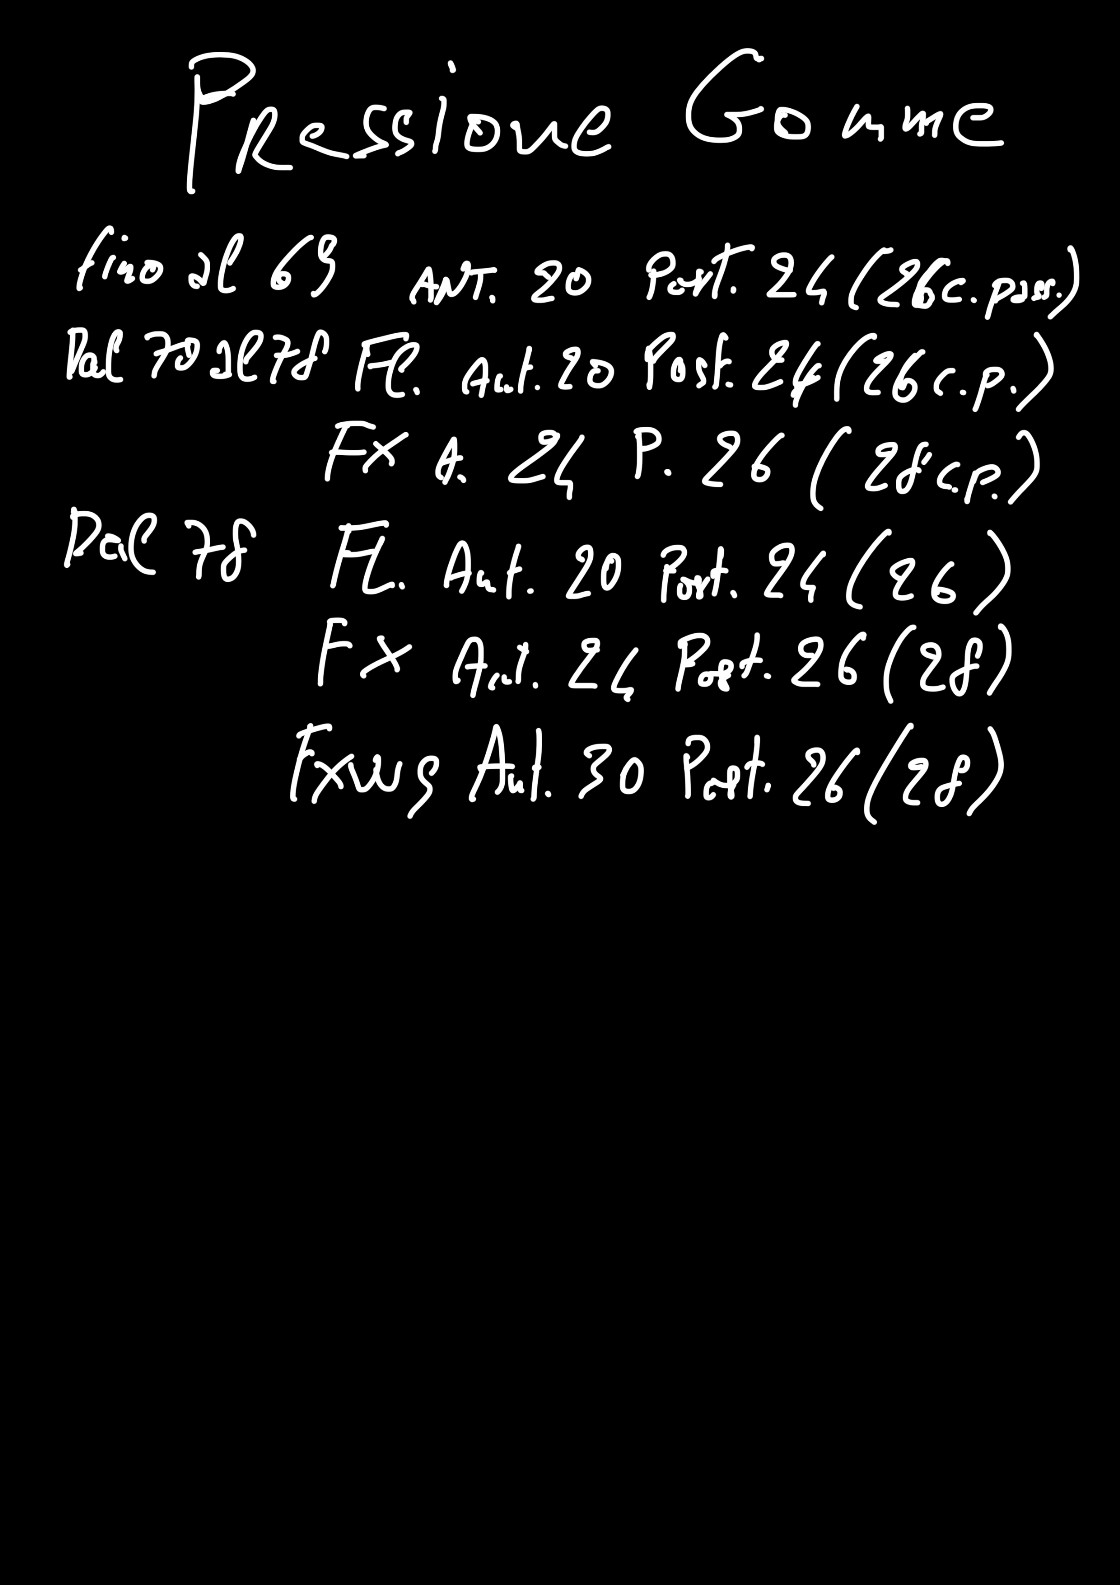 Pressione Gomme
fino al 69 ANT. 20 Post. 24 (26 c. pass.)
Dal 70 al 78 FL. Ant. 20 Post. 24 (26 c.p.)
FX A. 24 P. 26 (28 c.p.)
Dal 78 FL. Ant. 20 Post. 24 (26)
FX Ant. 24 Post. 26 (28)
FXWG Ant. 30 Post. 26 (28)